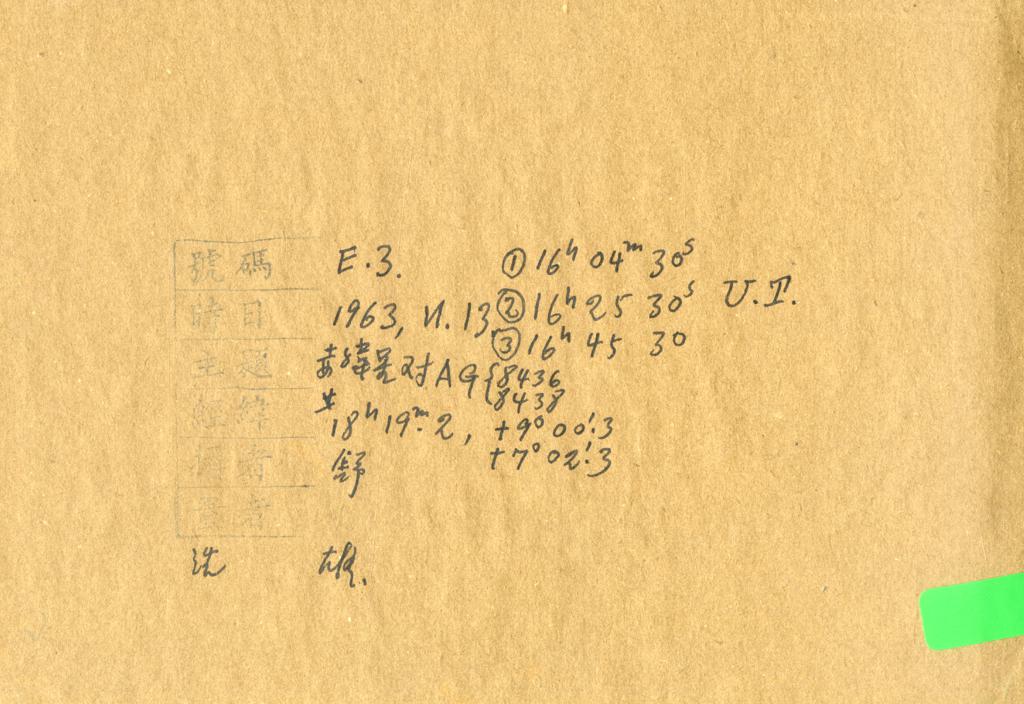 號碼 E.3. ① 16ʰ 04ᵐ 30ˢ
時日 1963, VI. 13 ② 16ʰ 25 30ˢ U.T.
③ 16ʰ 45 30
主題 对 AG { 8436
8438
經緯 18ʰ 19ᵐ.2, +9° 00'.3
+7° 02'.3
攝者 舒
量者
洗 雄.